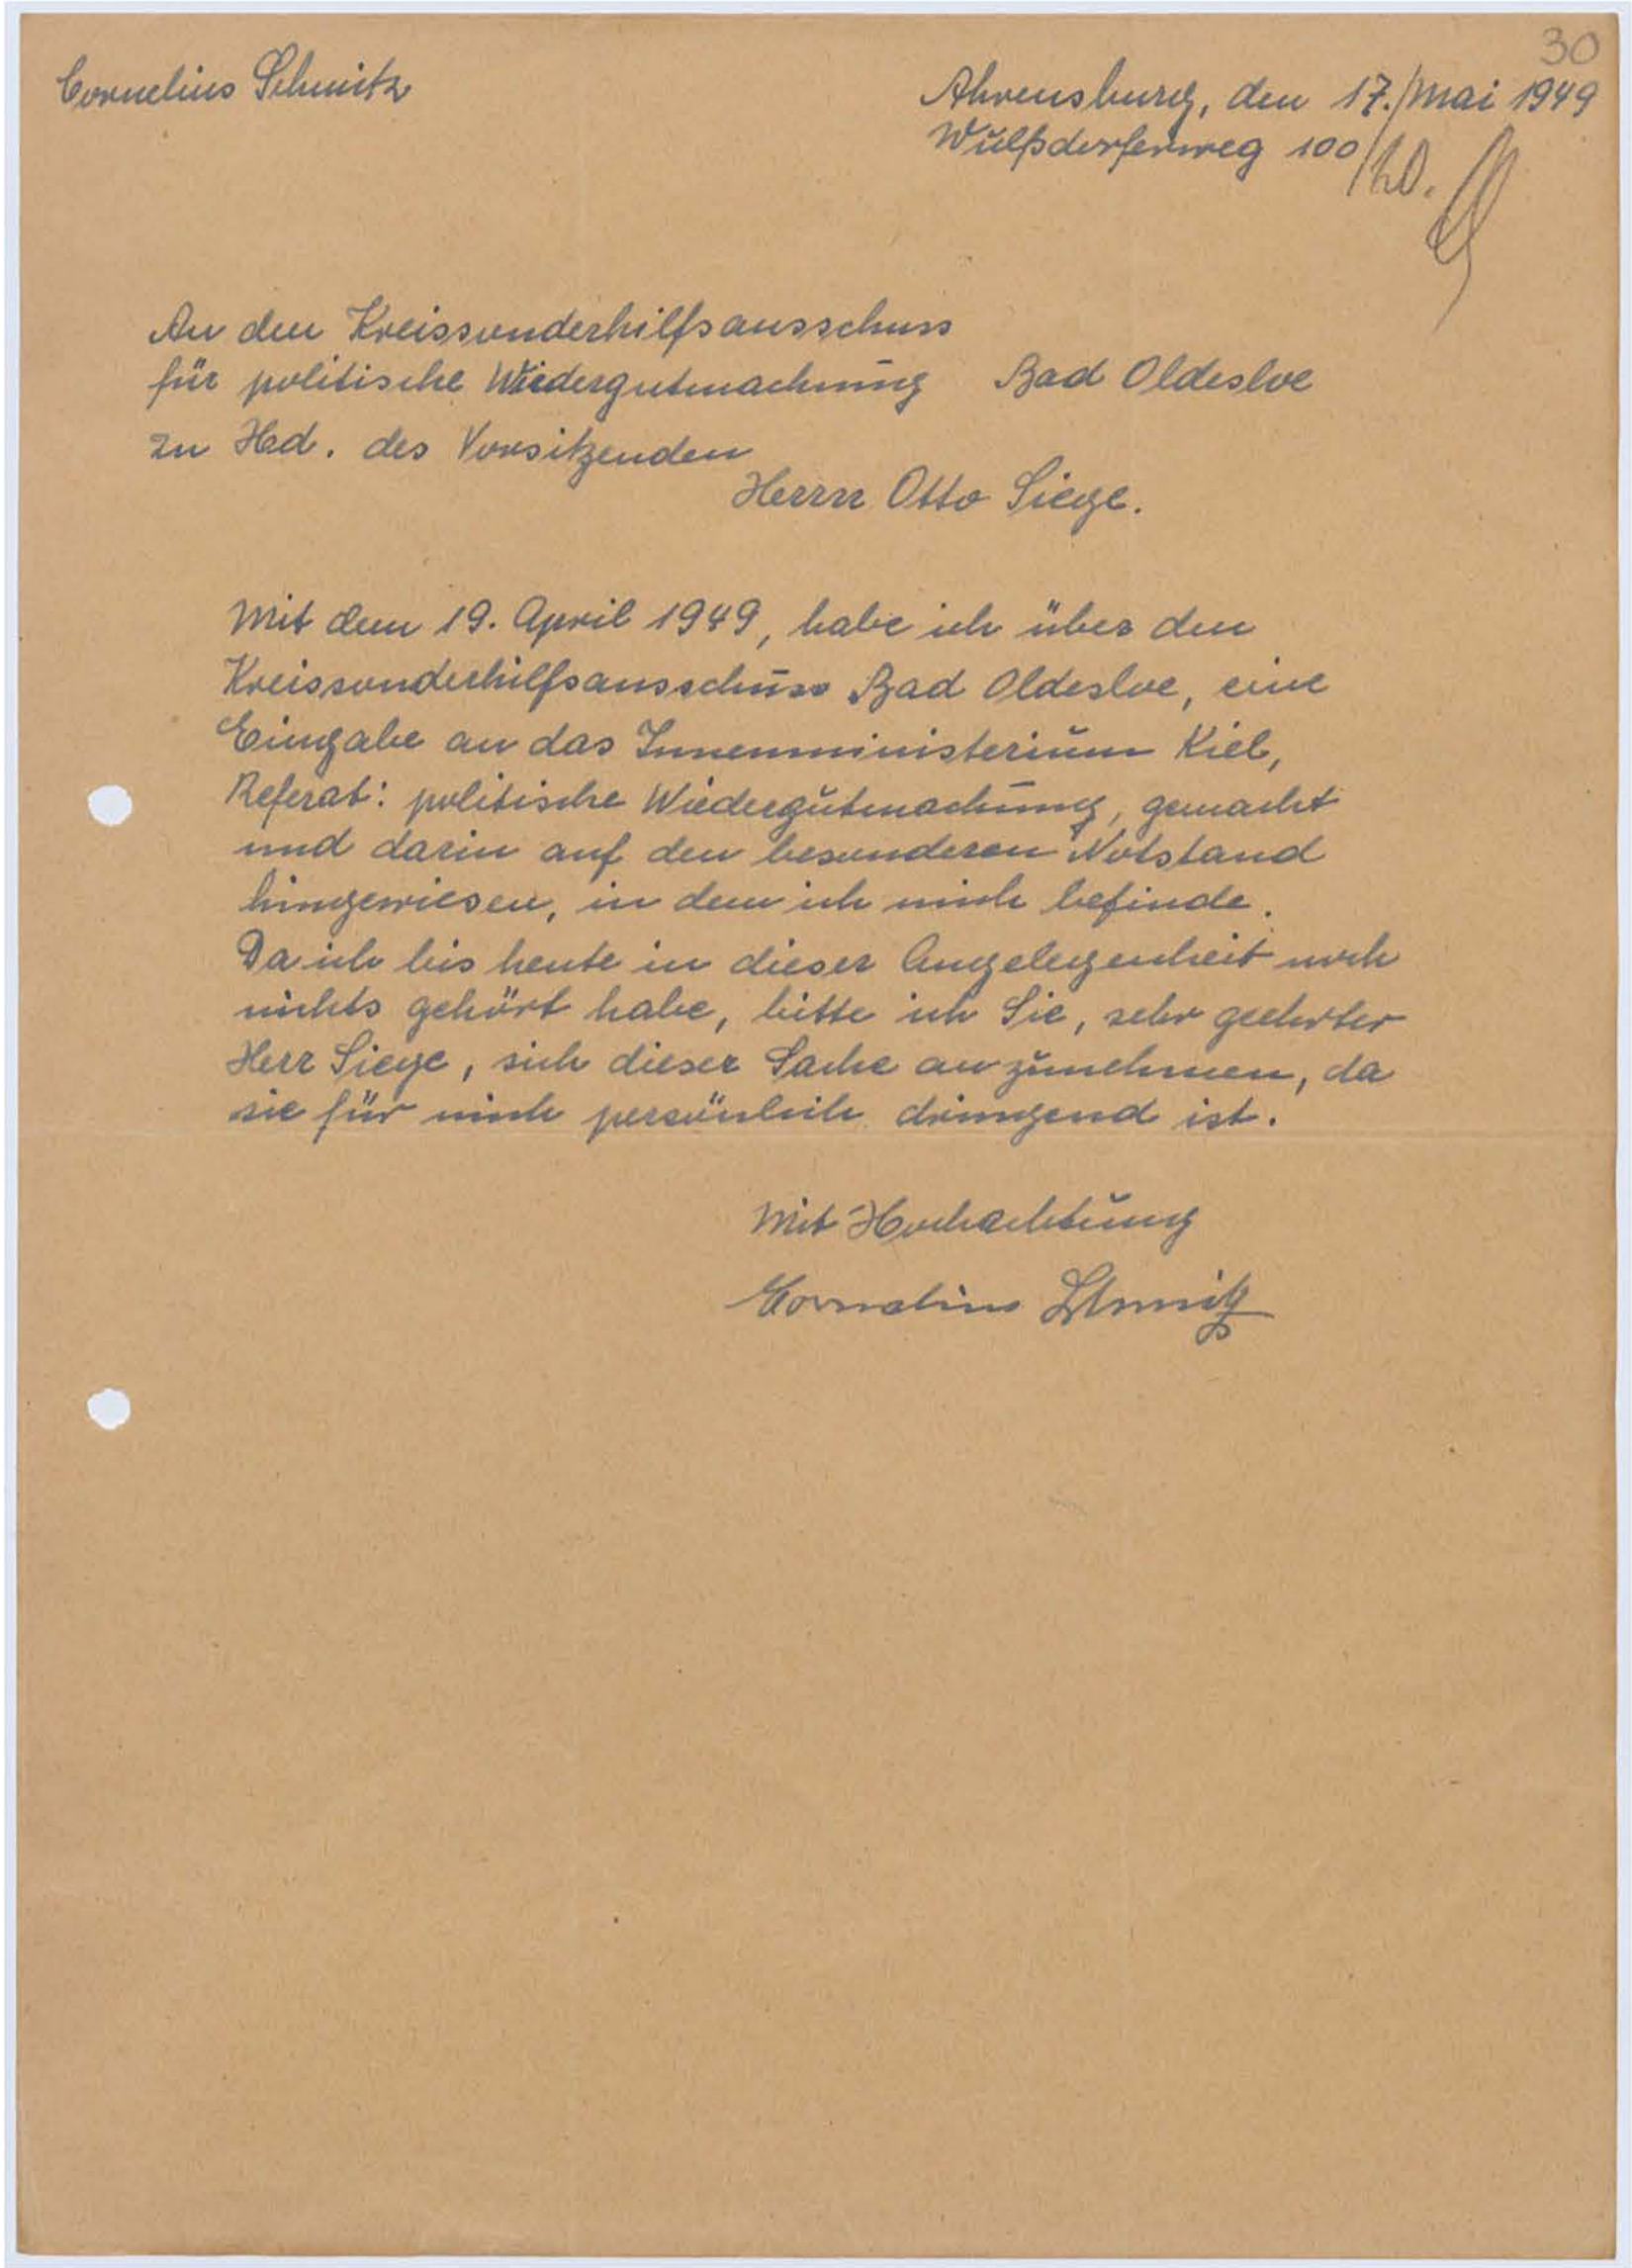 30
Cornelius Schmitz
Ahrensburg, den 17. Mai 1949
Wulfsdorferweg 100
An den Kreissonderhilfsausschuss
für politische Wiedergutmachung Bad Oldesloe
zu Hd. des Vorsitzenden
Herrn Otto Siege.
Mit dem 19. April 1949, habe ich über den
Kreissonderhilfsausschuss Bad Oldesloe, eine
Eingabe an das Innenministerium Kiel,
Referat: politische Wiedergutmachung, gemacht
und darin auf den besonderen Notstand
hingewiesen, in dem ich mich befinde.
Da ich bis heute in dieser Angelegenheit noch
nichts gehört habe, bitte ich Sie, sehr geehrter
Herr Siege, sich dieser Sache anzunehmen, da
sie für mich persönlich dringend ist.
Mit Hochachtung
Cornelius Schmitz